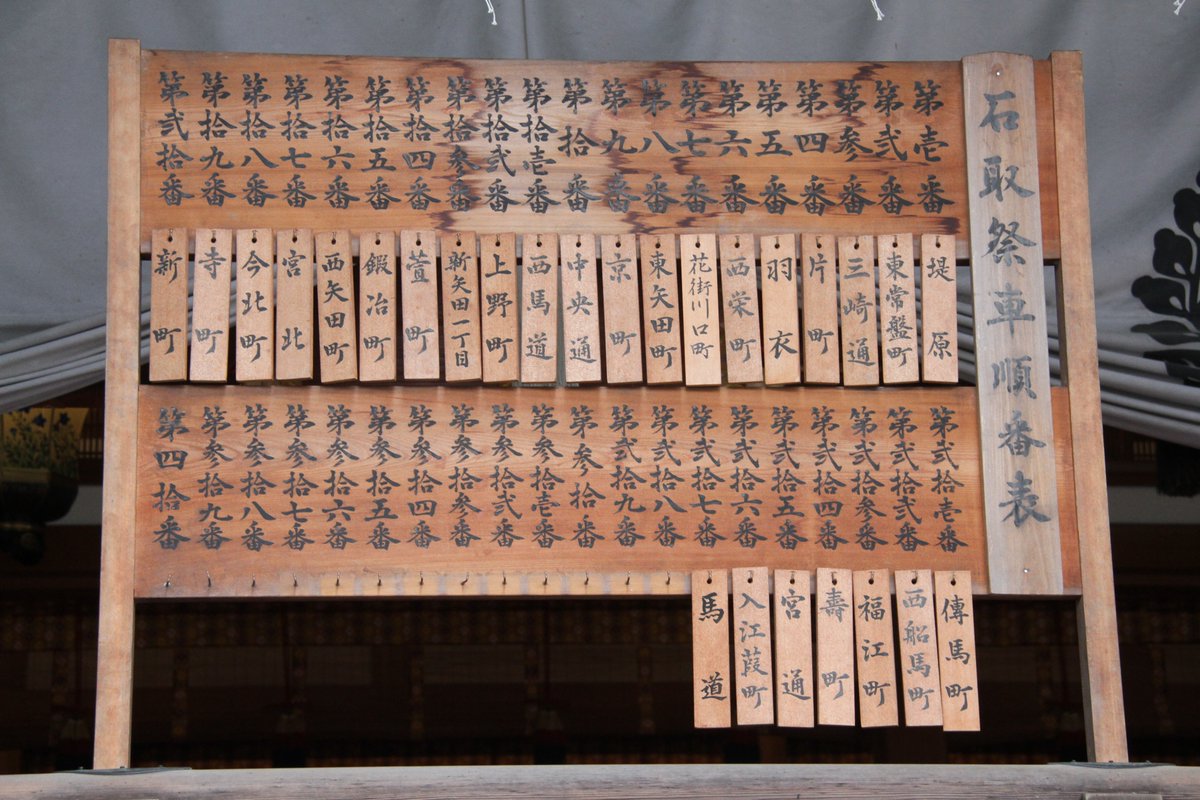 石取祭車順番表
第壱番
第弐番
第参番
第四番
第五番
第六番
第七番
第八番
第九番
第拾番
第拾壱番
第拾弐番
第拾参番
第拾四番
第拾五番
第拾六番
第拾七番
第拾八番
第拾九番
第弐拾番
堤原
東常盤町
三崎通
片町
羽衣
西栄町
花街川口町
東矢田町
京町
中央通
西馬道
上野町
新矢田一丁目
萱町
鍜冶町
西矢田町
宮北
今北町
寺町
新町
第弐拾壱番
第弐拾弐番
第弐拾参番
第弐拾四番
第弐拾五番
第弐拾六番
第弐拾七番
第弐拾八番
第弐拾九番
第参拾番
第参拾壱番
第参拾弐番
第参拾参番
第参拾四番
第参拾五番
第参拾六番
第参拾七番
第参拾八番
第参拾九番
第四拾番
傳馬町
西船馬町
福江町
壽町
宮通
入江葭町
馬道